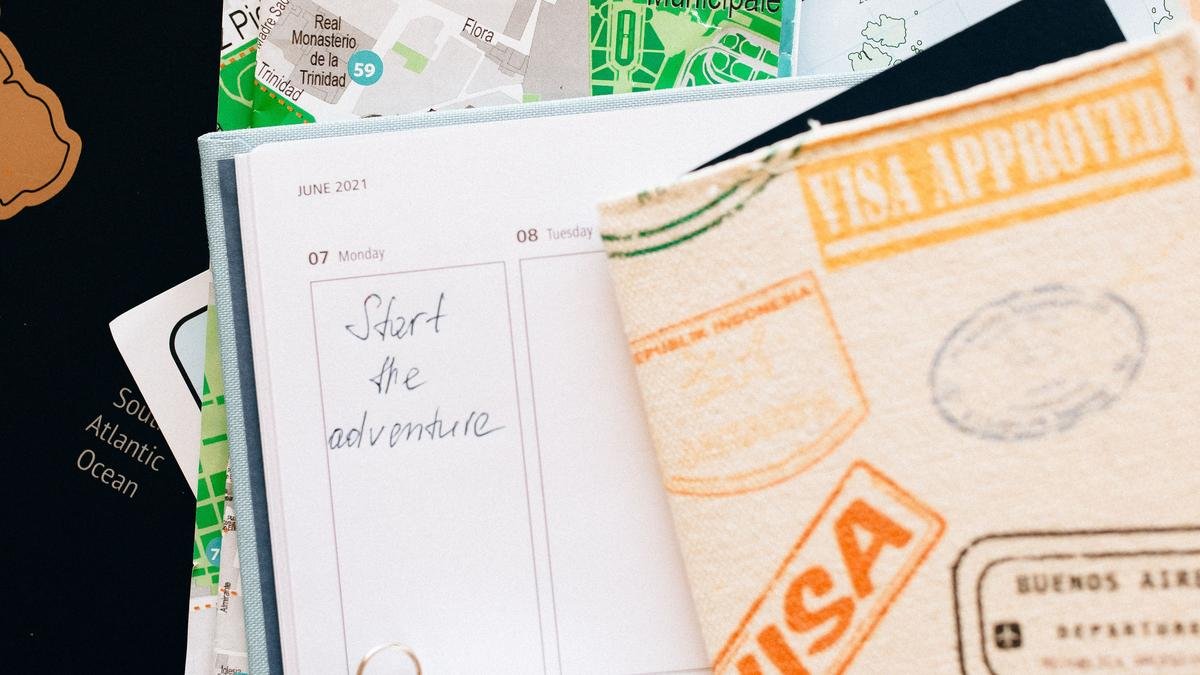 Real
Monasterio
de la
Trinidad
59
Trinidad
Flora
JUNE 2021
07 Monday
08 Tuesday
Start
the
adventure
VISA APPROVED
REPUBLIK INDONESIA
VISA
BUENOS
DEPARTURE
Atlantic
Ocean
7